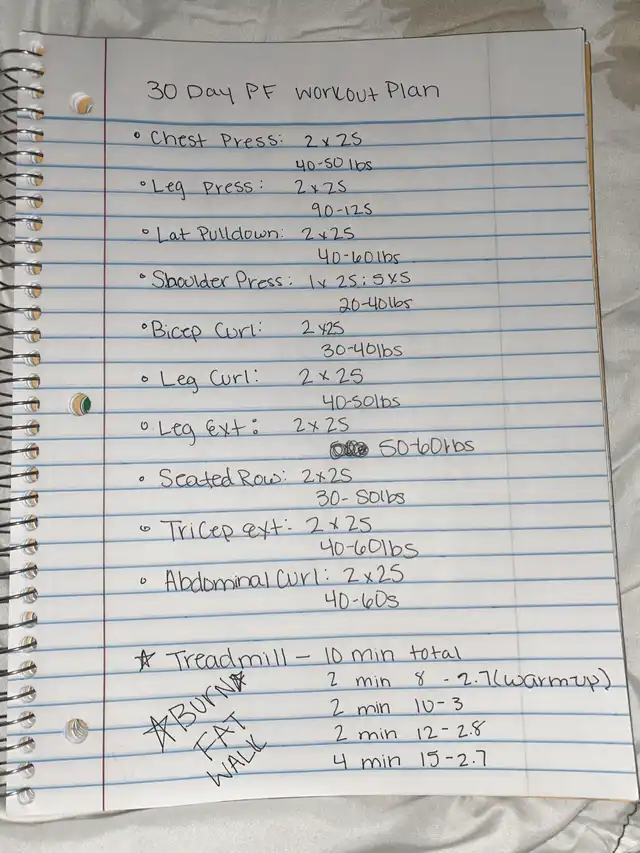 30 Day PF Workout Plan
• Chest Press: 2x25
40-50lbs
• Leg Press: 2x25
90-125
• Lat Pulldown: 2x25
40-60lbs
• Shoulder Press: 1x25; 5x5
20-40lbs
• Bicep Curl: 2x25
30-40lbs
• Leg Curl: 2x25
40-50lbs
• Leg ext: 2x25
50-60lbs
• Seated Row: 2x25
30-50lbs
• Tricep ext: 2x25
40-60lbs
• Abdominal Curl: 2x25
40-60s
☆ Treadmill - 10 min total
2 min 8 - 2.7(warmup)
2 min 10-3
2 min 12-2.8
4 min 15-2.7
☆BURN☆
FAT
WALK